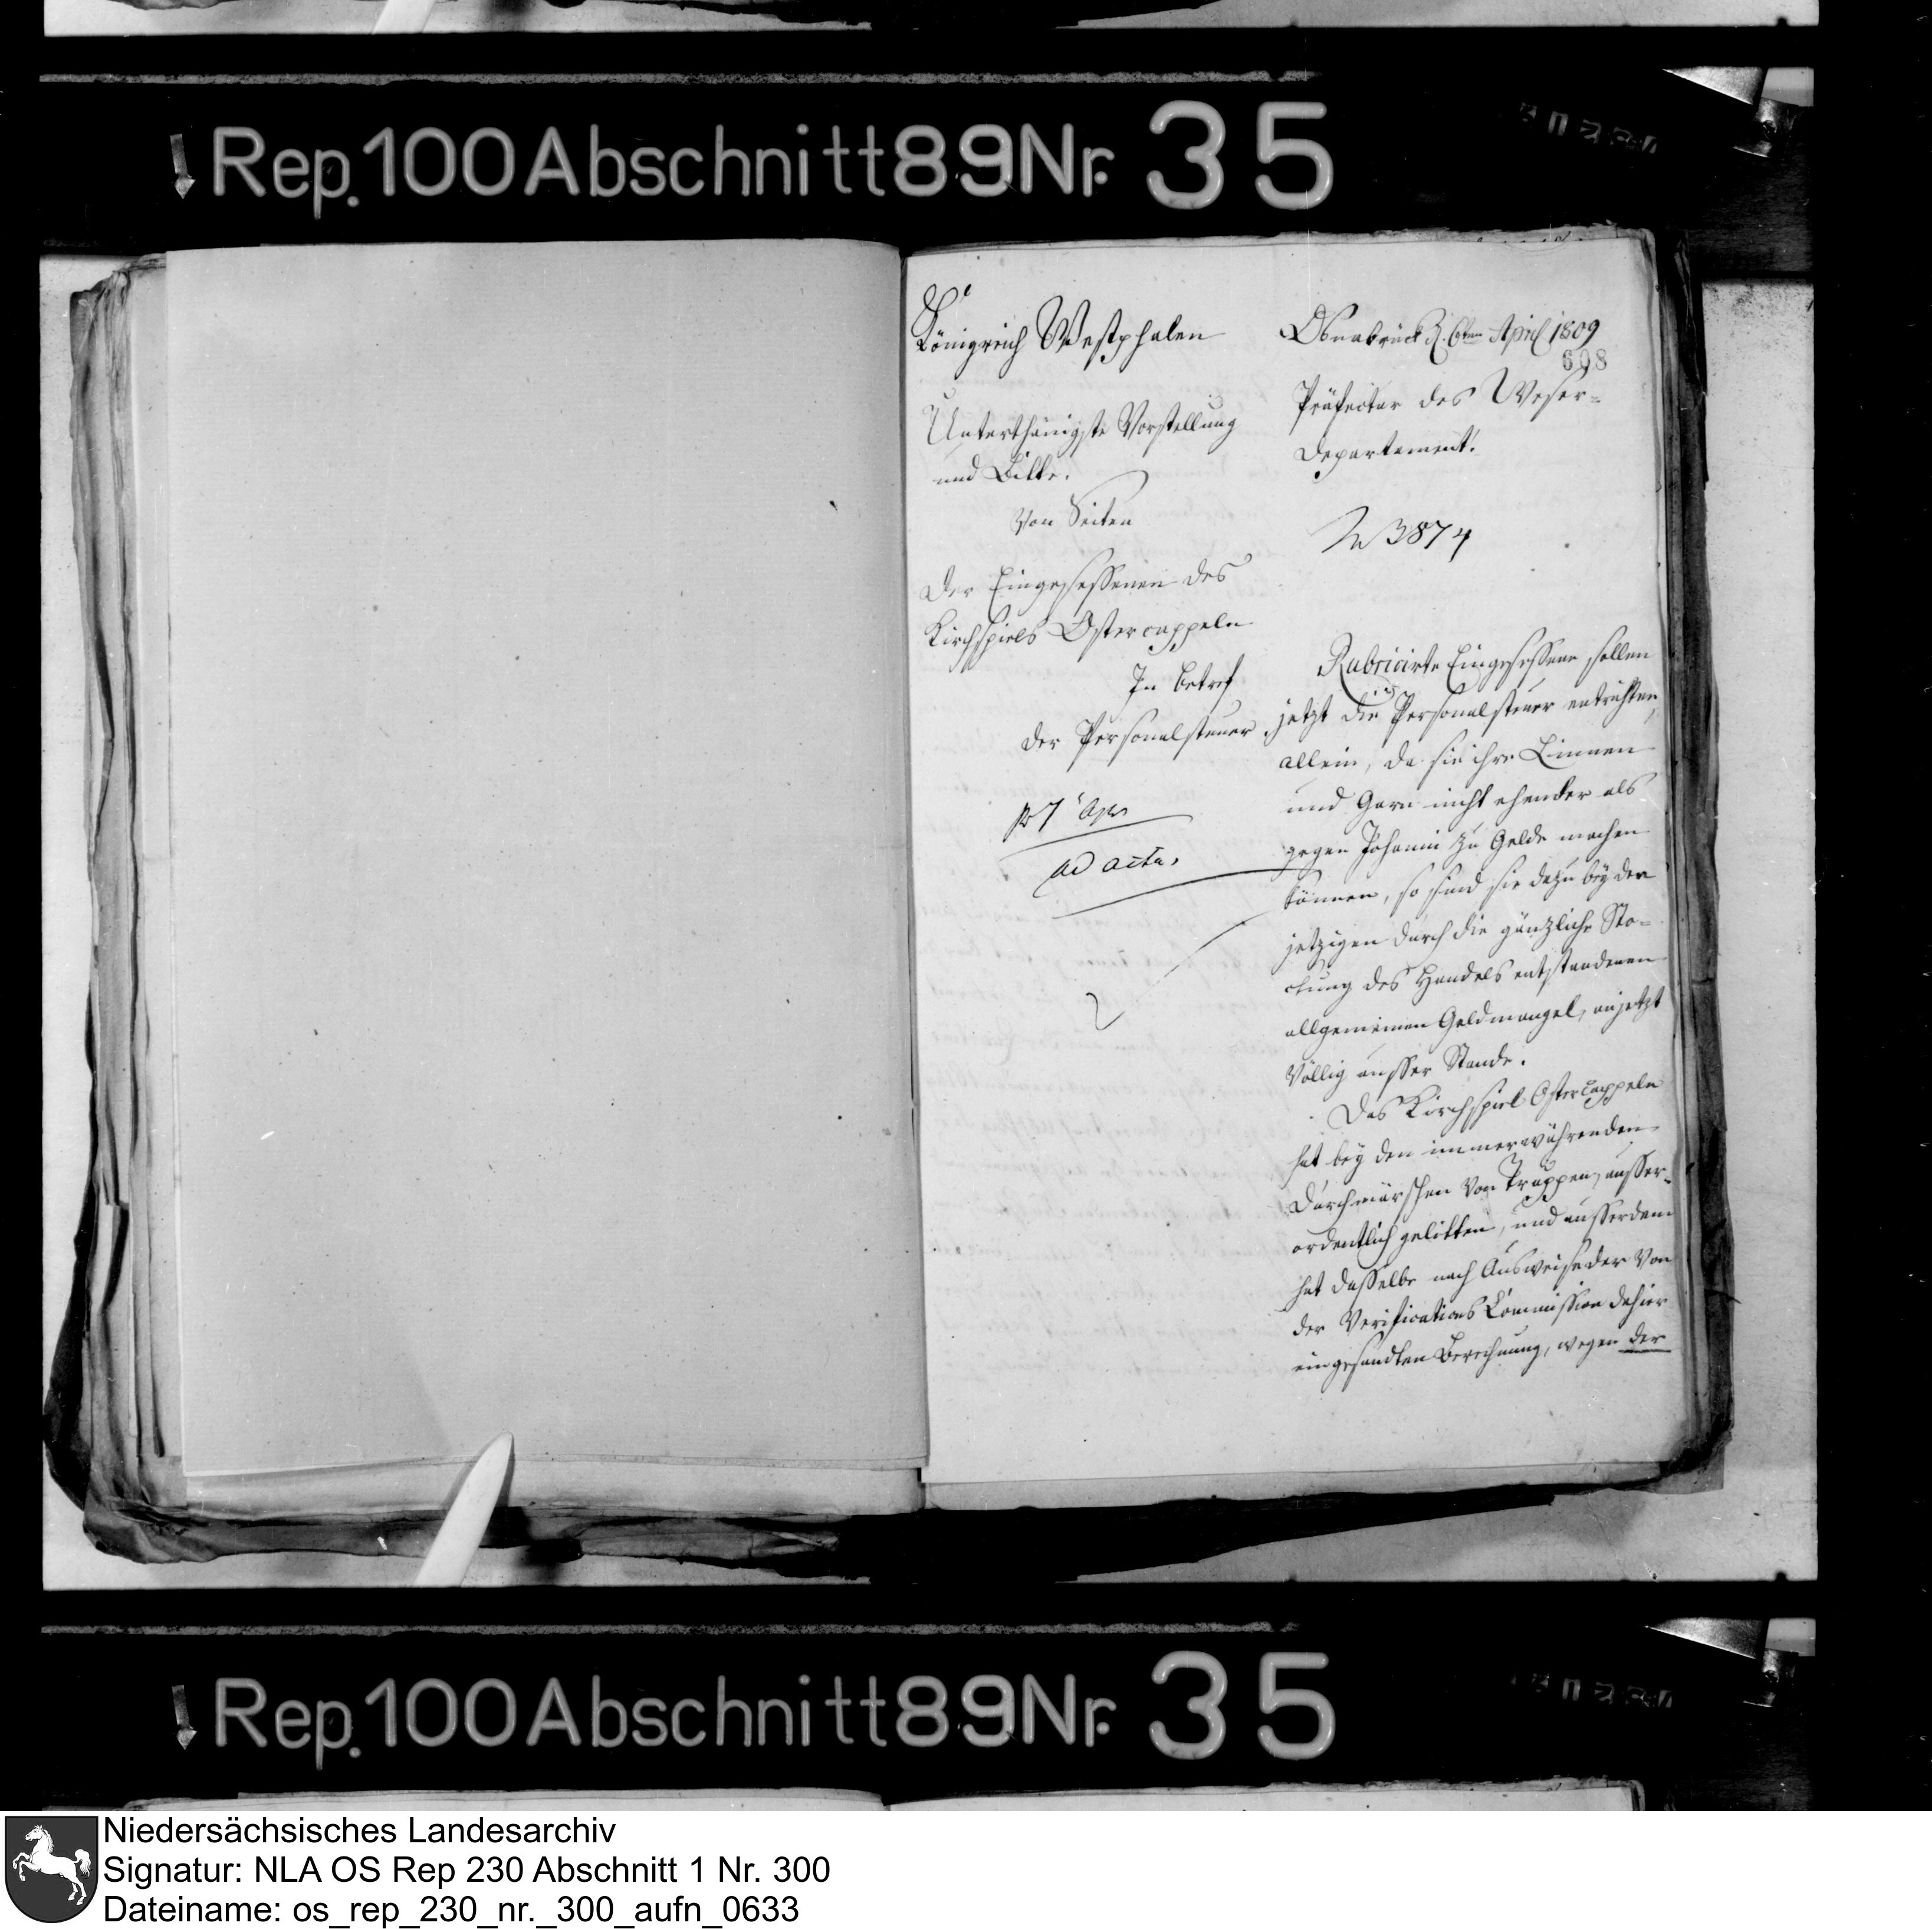 Rep. 100 Abschnitt 89 Nr. 35
Königreich Westphalen
Unterthänigste Vorstellung
und Bitte.
Von Seiten
Der Eingesessenen des
Kirchspiels Ostercappeln
In Betref
der Personalsteuer
ad acta.
Osnabrück d. 6ten April 1809
608
Präfectur des Weser-
Departement.
3874
Rubricirte Eingesessene sollen
jetzt die Personalsteuer entrichten,
allein, da sie ihre Linnen
und Garn nicht ehender als
gegen Johanni zu Gelde machen
können, so sind sie dazu bey dem
jetzigen durch die gänzliche Sto-
ckung des Handels entstandenen
allgemeinen Geldmangel, anjetzt
völlig ausser Stande.
Das Kirchspiel Ostercappeln
hat bey den immerwährenden
Durchmärschen von Truppen, ausser-
ordentlich gelitten, und ausserdem
hat dasselbe nach Ausweise der von
der Verifications Commission dahier
eingesandten Berechnung, wegen der
Rep. 100 Abschnitt 89 Nr. 35
Niedersächsisches Landesarchiv
Signatur: NLA OS Rep 230 Abschnitt 1 Nr. 300
Dateiname: os_rep_230_nr._300_aufn_0633